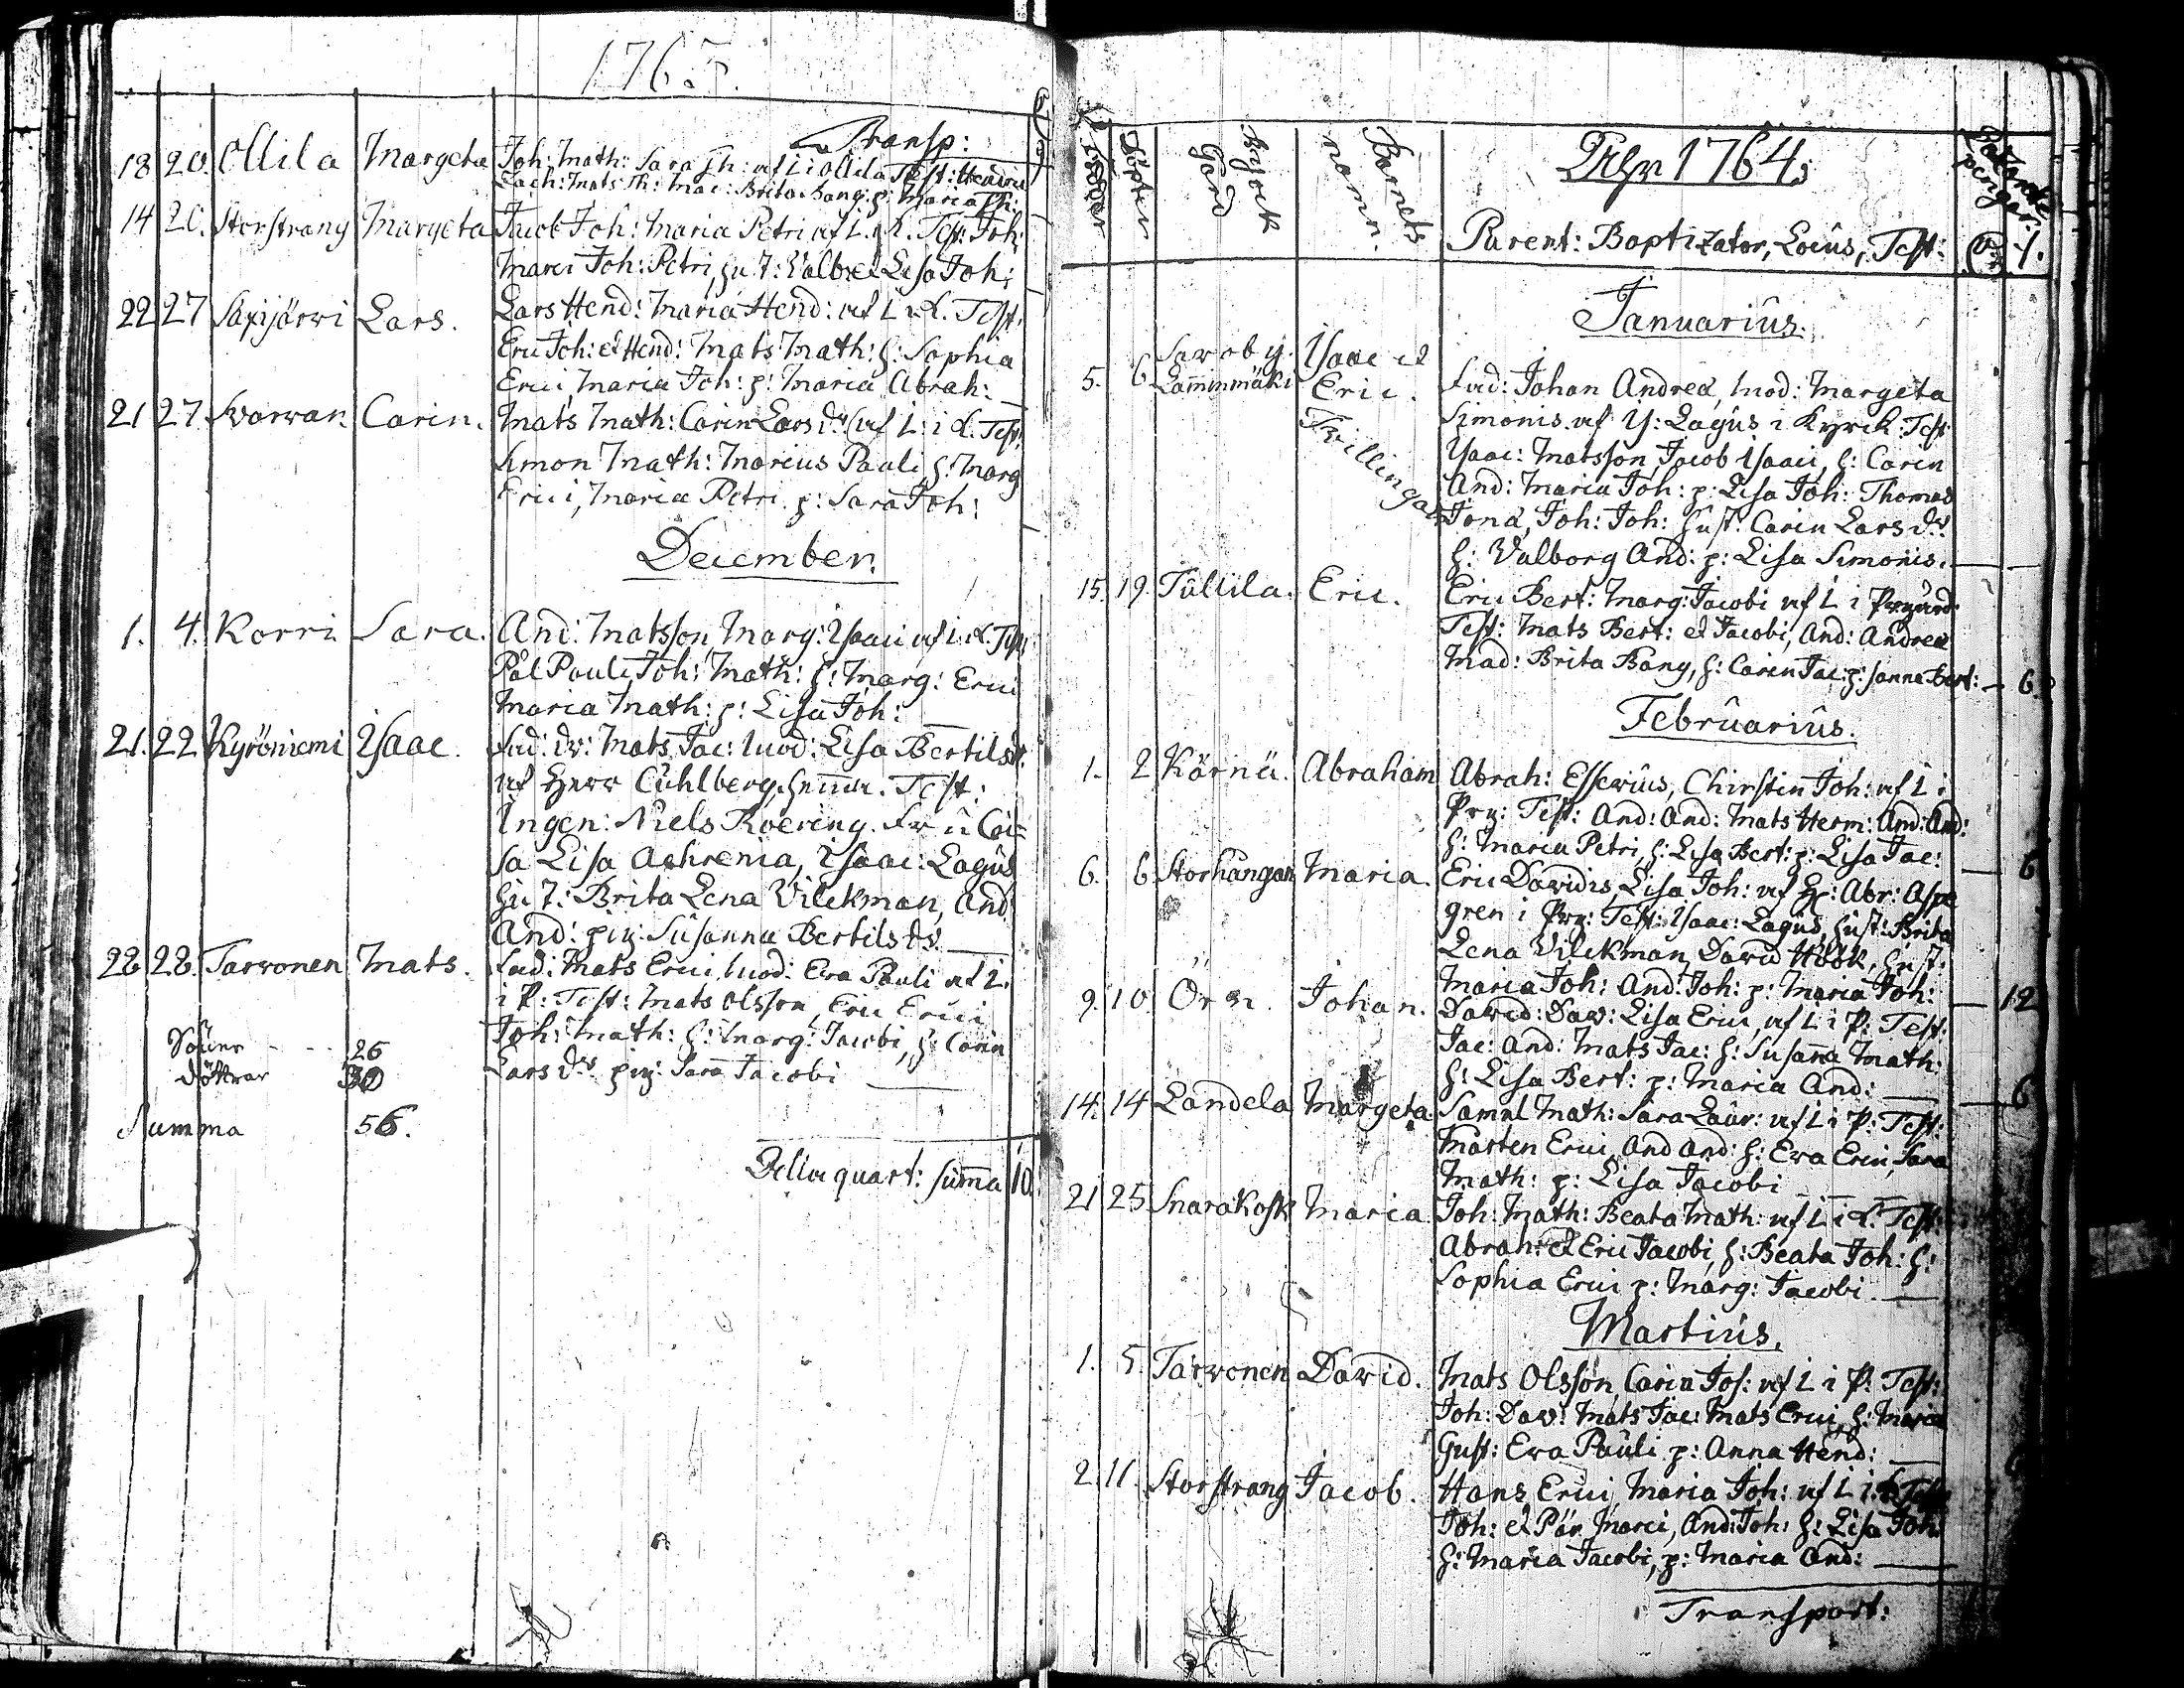 1763.
Transp:
18 20. Ollila Margeta Joh: Math: Sara Th: uf L i Ollila Test: Hendric
Zach: Mats Th: Mac: Brita Bang: p: Maria Th:
14 20. Storstrang Margeta Jacob Joh: Maria Petri uf L. i K. Test: Joh:
Marci Joh: Petri, hust: Valb: et Lisa Joh:
22 27 Säxijärwi Lars. Lars Hend: Maria Hend: uf L i K. Test.
Eric Joh: et Hend: Mats Math: h: Sophia
Erici, Maria Joh: p: Maria Abrah:
21 27. Swarwar. Carin. Mats Math: Carin Lars dr uf L: i K. Test:
Simon Math: Marcus Pauli h: Marg
Erici, Maria Petri p: Sara Joh:
December.
1. 4. Korri Sara. And: Matsson, Marg: Isaaci uf L. i K. Test:
Pål Pauli, Joh: Math: h: Marg: Erici
Maria Math: p: Lisa Joh:
21. 22 Kyröniemi Isaac. Fad: dr: Mats Jac: Mod: Lisa Bertils dr.
uf Herr Cuhlberg, hemma. Test:
Ingen: Niels Roering. Fru Cai=
sa Lisa Aehrenia, Isaac: Lagus
hust: Brita Lena Vilekman, And:
And: pig: Susanna Bertils dr
28 28. Tarvonen Mats. Fad: Mats Erici, Mod: Eva Pauli uf L.
i P: Test: Mats Olsson, Eric Erici
Joh: Math: h: Marg: Jacobi, h: Carin
Lars dr pig: Sara Jacobi
Söner - - - 26
döttrar 30
Summa 56.
Della quart: summa 10.
Födder Döpter By ock Gård Barnets namn. Pro 1764: Barnske pengar.
Parent: Baptizator, Locus, Test:
Januarius.
5. 6. Saroby. Lamminmäki Isaac et Eric. Tvillingar Fad: Johan Andreæ, Mod: Margeta
Simonis uf Y: Lagus i Kyrck: Test
Isaac: Matsson Jacob Isaaci, h: Carin
And: Maria Joh: p: Lisa Joh: Thomas
Jonæ, Joh: Joh: hust: Carin Lars dr:
h: Valborg And: p: Lisa Simonis.
15. 19. Tullila. Eric. Eric Bert: Marg: Jacobi uf L i Prgård:
Test: Mats Bert: et Jacobi, And: Andreæ
Mad: Brita Bang, h: Carin Jac: p: Sanna Bert: — 6.
Februarius.
1. 2 Kärnä. Abraham Abrah: Esserius, Chirstin Joh: uf L i
Prg: Test: And: And: Mats Herm: And: And:
h: Maria Petri, h: Lisa Bert: p: Lisa Jac: — 6
6. 6 Storhangan Maria. Eric Davidis, Lisa Joh: uf Hr: Abr: Aspe
gren i Prg: Test: Isaac: Lagus, hust: Brita
Lena Vilekman, David Höök, hust:
Maria Joh: And: Joh: p: Maria Joh: — 12
9. 10 Örn. Johan. David: Dav: Lisa Erici, uf L i P: Test:
Jac: And: Mats Jac: h: Susanna Math:
h: Lisa Bert: p: Maria And: — 6
14. 14 Landela Margeta. Saml Math: Sara Laur: uf L i P: Test:
Mårten Erici, And And: h: Eva Erici, Sara
Math: p: Lisa Jacobi
21 25 Snarakosk Maria Joh: Math: Beata Math: uf L i K. Test:
Abrah: et Eric Jacobi, h: Beata Joh: h:
Sophia Erici p: Marg: Jacobi
Martius.
1. 5. Tarvonen David. Mats Olsson, Carin Jos: uf L i P: Test:
Joh: Dav: Mats Jac: Mats Erici, h: Maria
Gust: Eva Pauli p: Anna Hend:
2. 11. Storstrang Jacob. Hans Erici, Maria Joh: uf L i K. Test:
Joh: et Pär Marci, And: Joh: h: Lisa Joh:
h: Maria Jacobi, p: Maria And:
Transport: